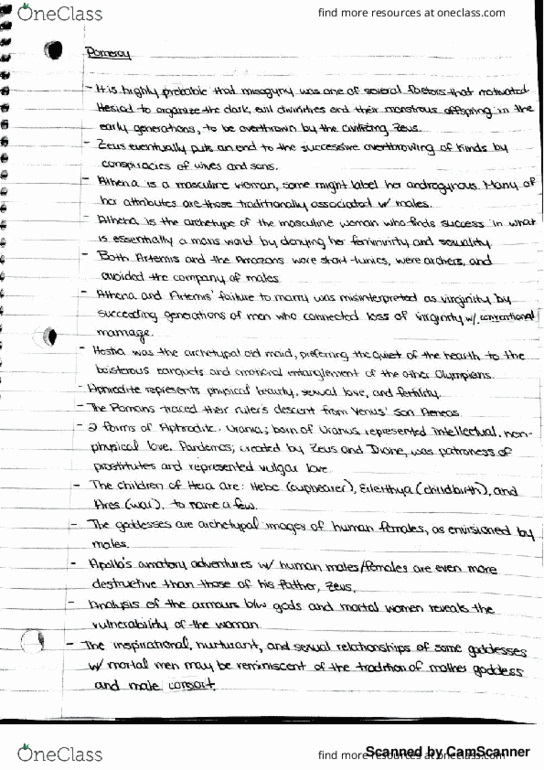 OneClass
find more resources at oneclass.com
Pomeroy
- It is highly probable that misogyny was one of several factors that motivated
Hesiod to organize the dark, evil divinities and their monstrous offspring in the
early generations, to be overthrown by the civilizing Zeus.
- Zeus eventually puts an end to the successive overthrowing of kinds by
conspiracies of wives and sons.
- Athena is a masculine woman, some might label her androgynous. Many of
her attributes are those traditionally associated w/ males.
- Athena is the archetype of the masculine woman who finds success in what
is essentially a mans world by denying her femininity and sexuality
- Both Artemis and the Amazons wore short tunics, were archers, and
avoided the company of males
- Athena and Artemis' failure to marry was misinterpreted as virginity by
succeeding generations of men who connected loss of virginity w/ conventional
marriage.
- Hestia was the archetypal old maid, preferring the quiet of the hearth to the
boisterous banquets and emotional entanglement of the other Olympians.
- Aphrodite represents physical beauty, sexual love, and fertility.
- The Romans traced their ruler's descent from Venus' son Aeneas.
- 2 forms of Aphrodite. Urania; born of Uranus, represented intellectual, non-
physical love. Pandemos; created by Zeus and Dione, was patroness of
prostitutes and represented vulgar love
- The children of Hera are: Hebe (cupbearer), Eileithya (childbirth), and
Ares (war), to name a few.
- The goddesses are archetypal images of human females, as envisioned by
males.
- Apollo's amatory adventures w/ human males/females are even more
destructive than those of his father, Zeus.
- Analysis of the amours b/w gods and mortal women reveals the
vulnerability of the woman.
- The inspirational, nurturant, and sexual relationships of some goddesses
w/ mortal men may be reminiscent of the tradition of mother goddess
and male consort.
OneClass
find more resources at oneclass.com
Scanned by CamScanner